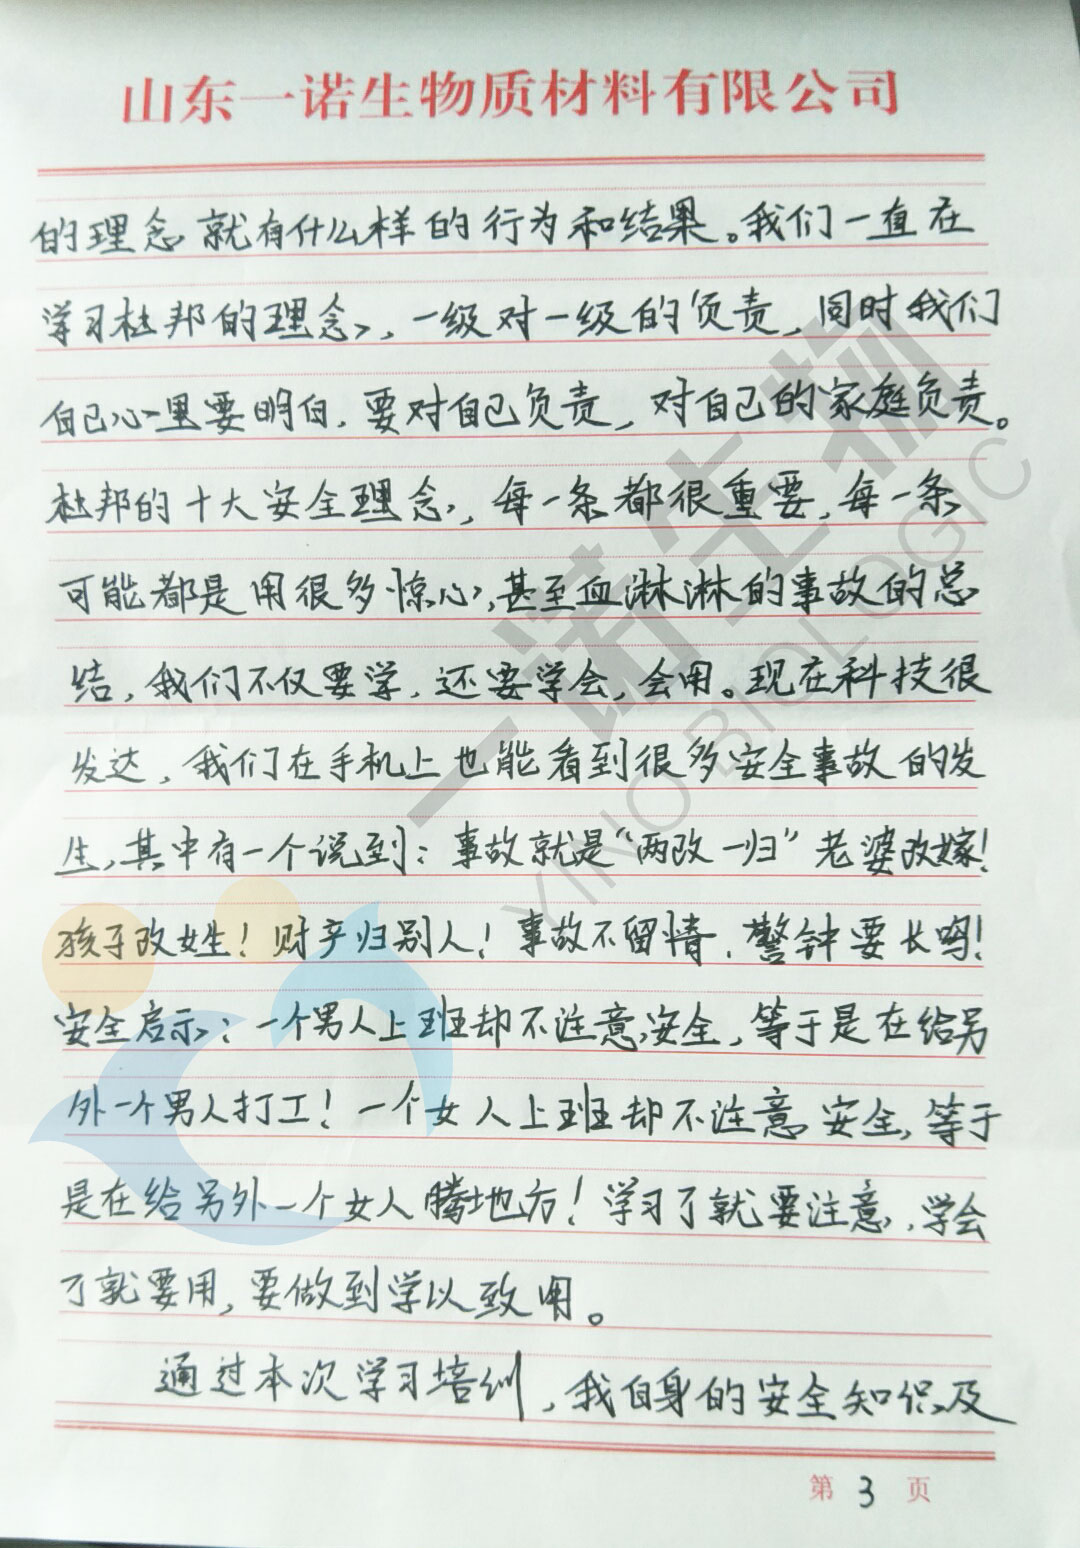 山东一诺生物质材料有限公司
的理念就有什么样的行为和结果。我们一直在
学习杜邦的理念，一级对一级的负责，同时我们
自己心里要明白，要对自己负责，对自己的家庭负责。
杜邦的十大安全理念，每一条都很重要，每一条
可能都是用很多惊心，甚至血淋淋的事故的总
结，我们不仅要学，还要学会，会用。现在科技很
发达，我们在手机上也能看到很多安全事故的发
生，其中有一个说到：事故就是“两改一归”老婆改嫁！
孩子改姓！财产归别人！事故不留情，警钟要长鸣！
安全启示：一个男人上班却不注意安全，等于是在给另
外一个男人打工！一个女人上班却不注意安全，等于
是在给另外一个女人腾地方！学习了就要注意，学会
了就要用，要做到学以致用。
通过本次学习培训，我自身的安全知识及
第3页
一诺生物
YINO BIOLOGIC